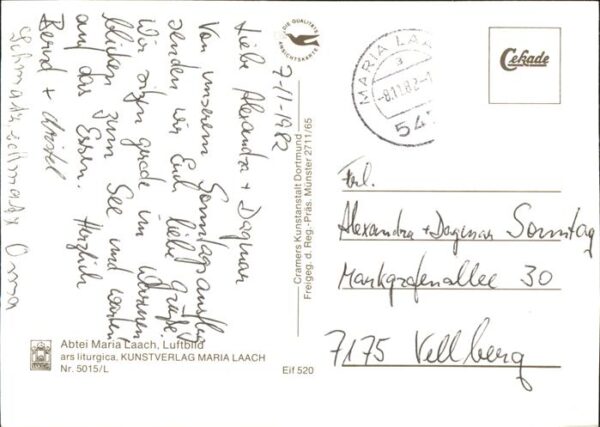 7-11-1982
Liebe Alexandra + Dagmar
Von unserem Sonntagsausflug
senden wir Euch liebe Grüße.
Wir sitzen gerade im Warmen
blicken zum See und warten
auf das Essen. Herzlich
Bernd + Christel
Oma
DIE QUALITÄTS
ANSICHTSKARTE
MARIA LAA
a
-8.11.82-1
54
Cekade
Cramers Kunstanstalt Dortmund
Freigeg. d. Reg.-Präs. Münster 2711/65
Frl.
Alexandra + Dagmar Sonntag
Markgrafenallee 30
7175 Vellberg
Abtei Maria Laach, Luftbild
ars liturgica, KUNSTVERLAG MARIA LAACH
Nr. 5015/L
Eif 520